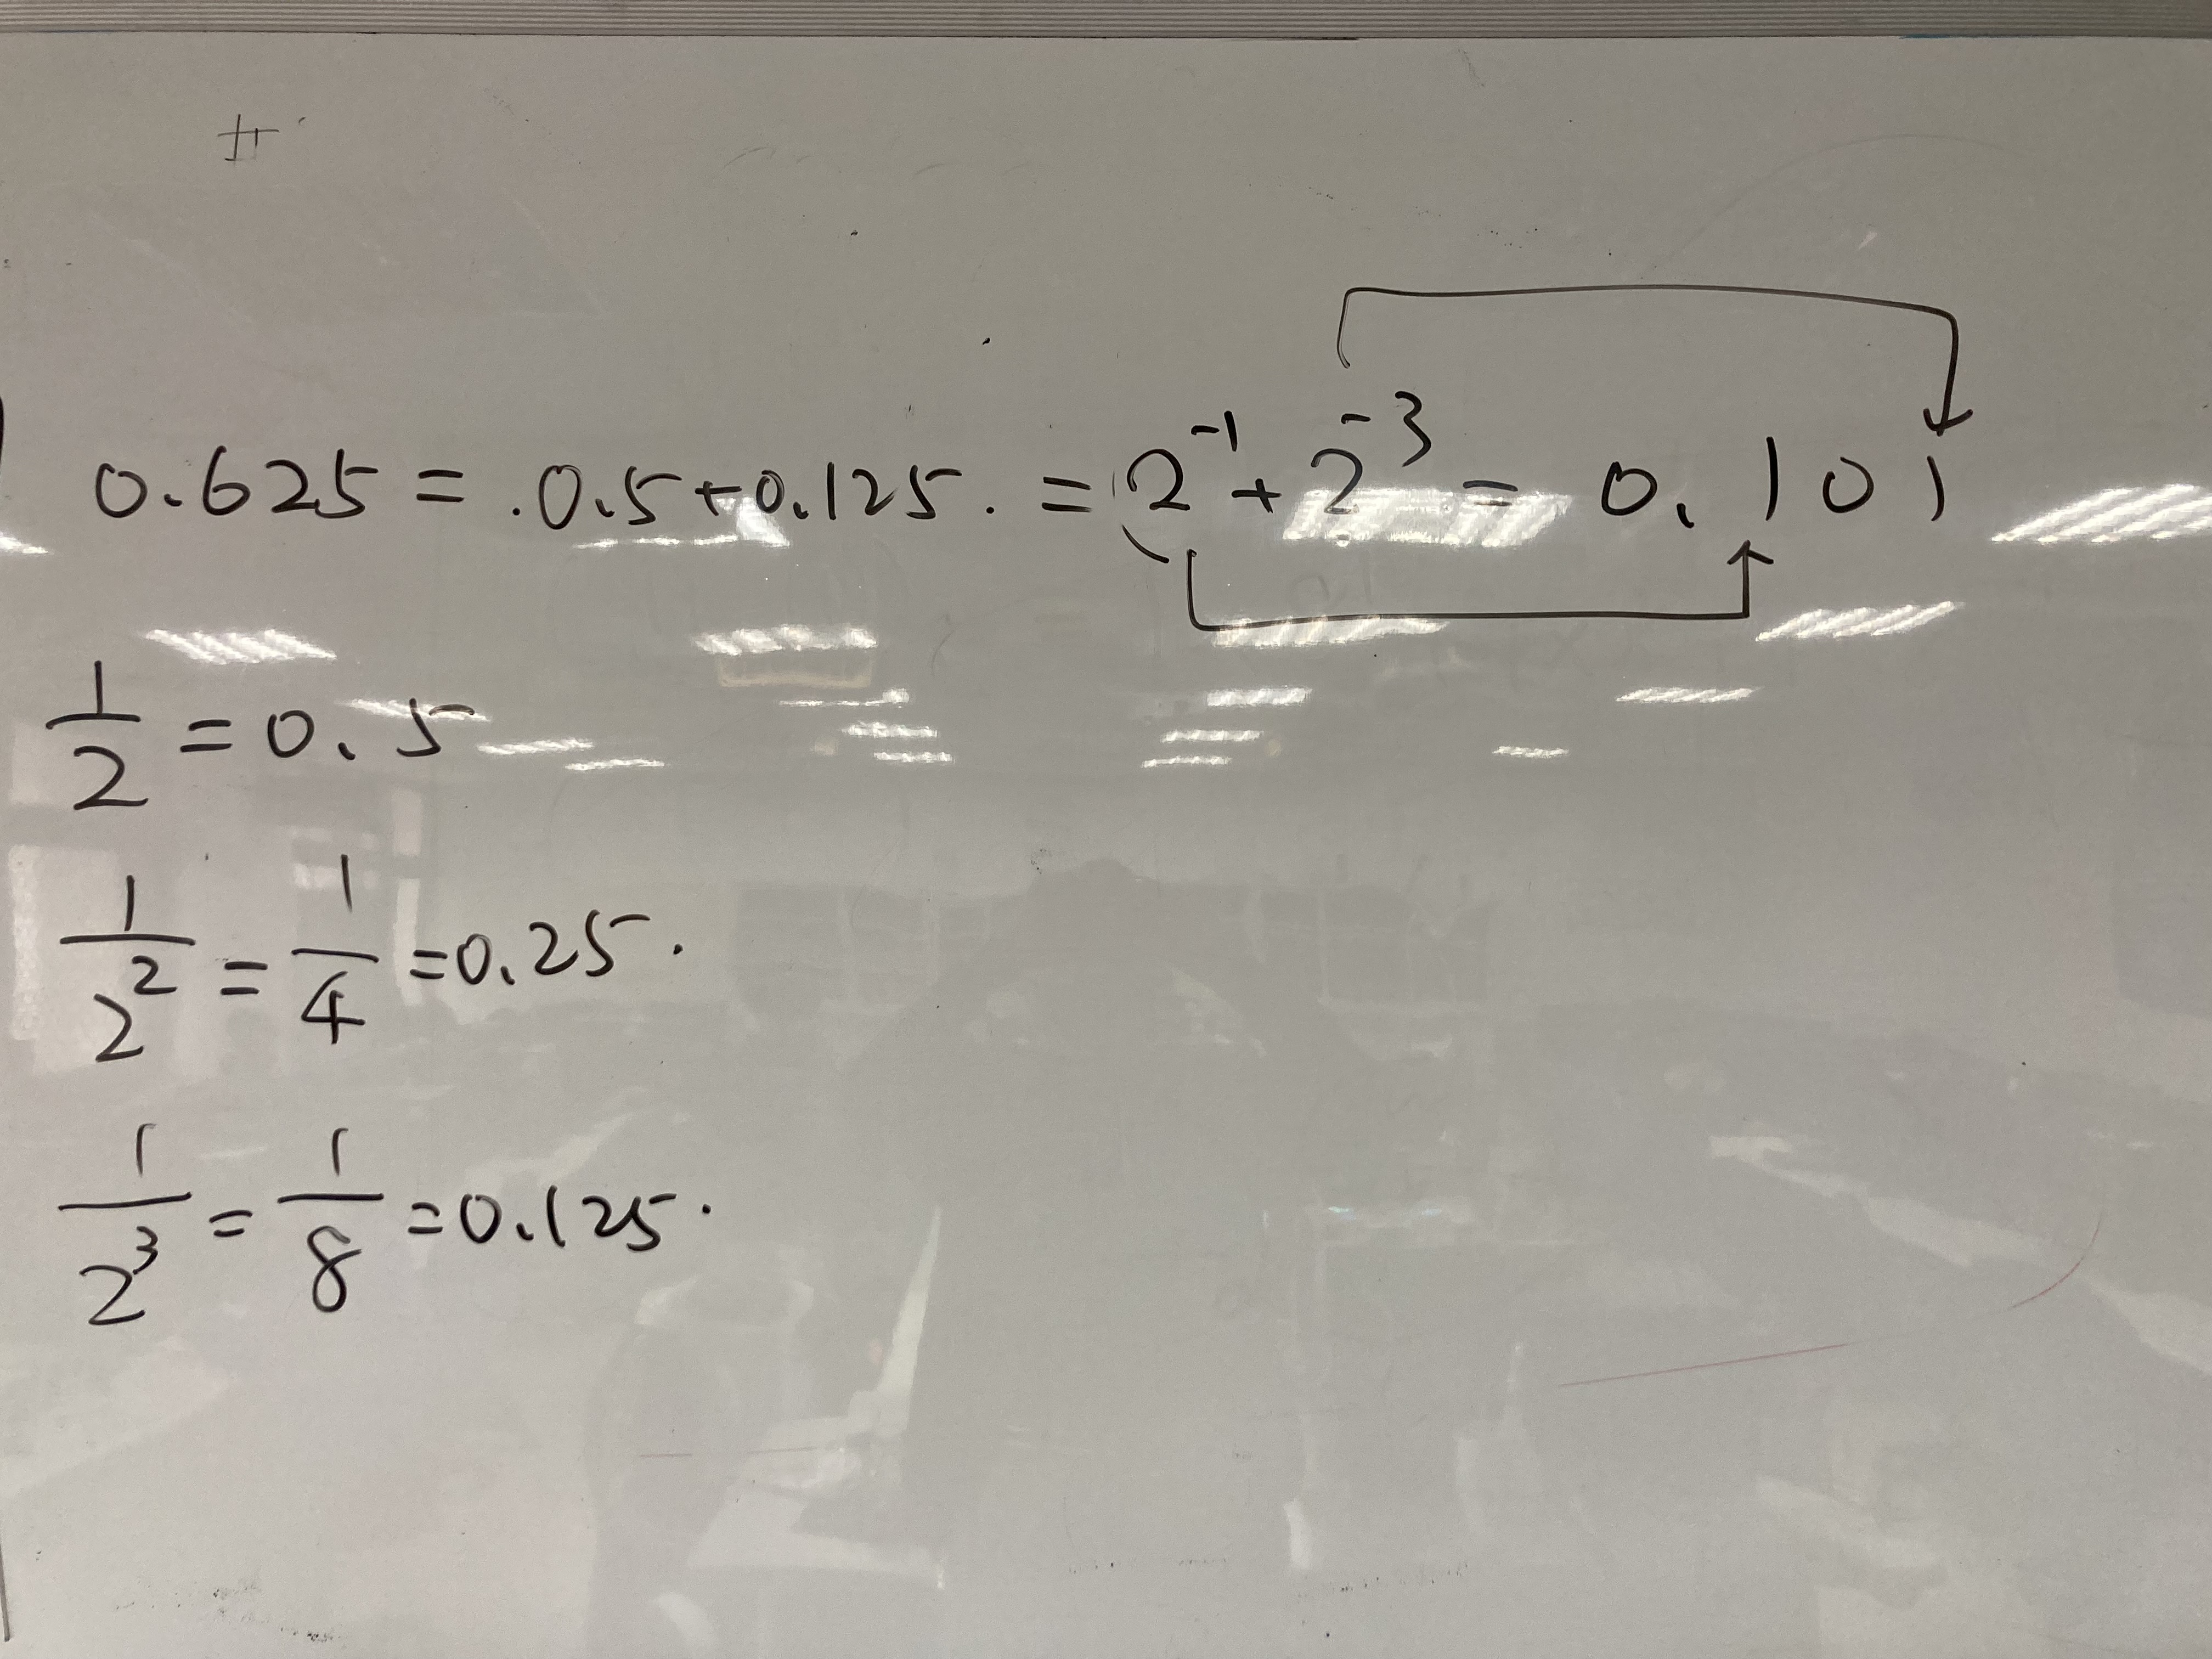 0.625 = .0.5+0.125. = 2⁻¹ + 2⁻³ = 0.101
1/2 = 0.5
1/2² = 1/4 = 0.25.
1/2³ = 1/8 = 0.125.